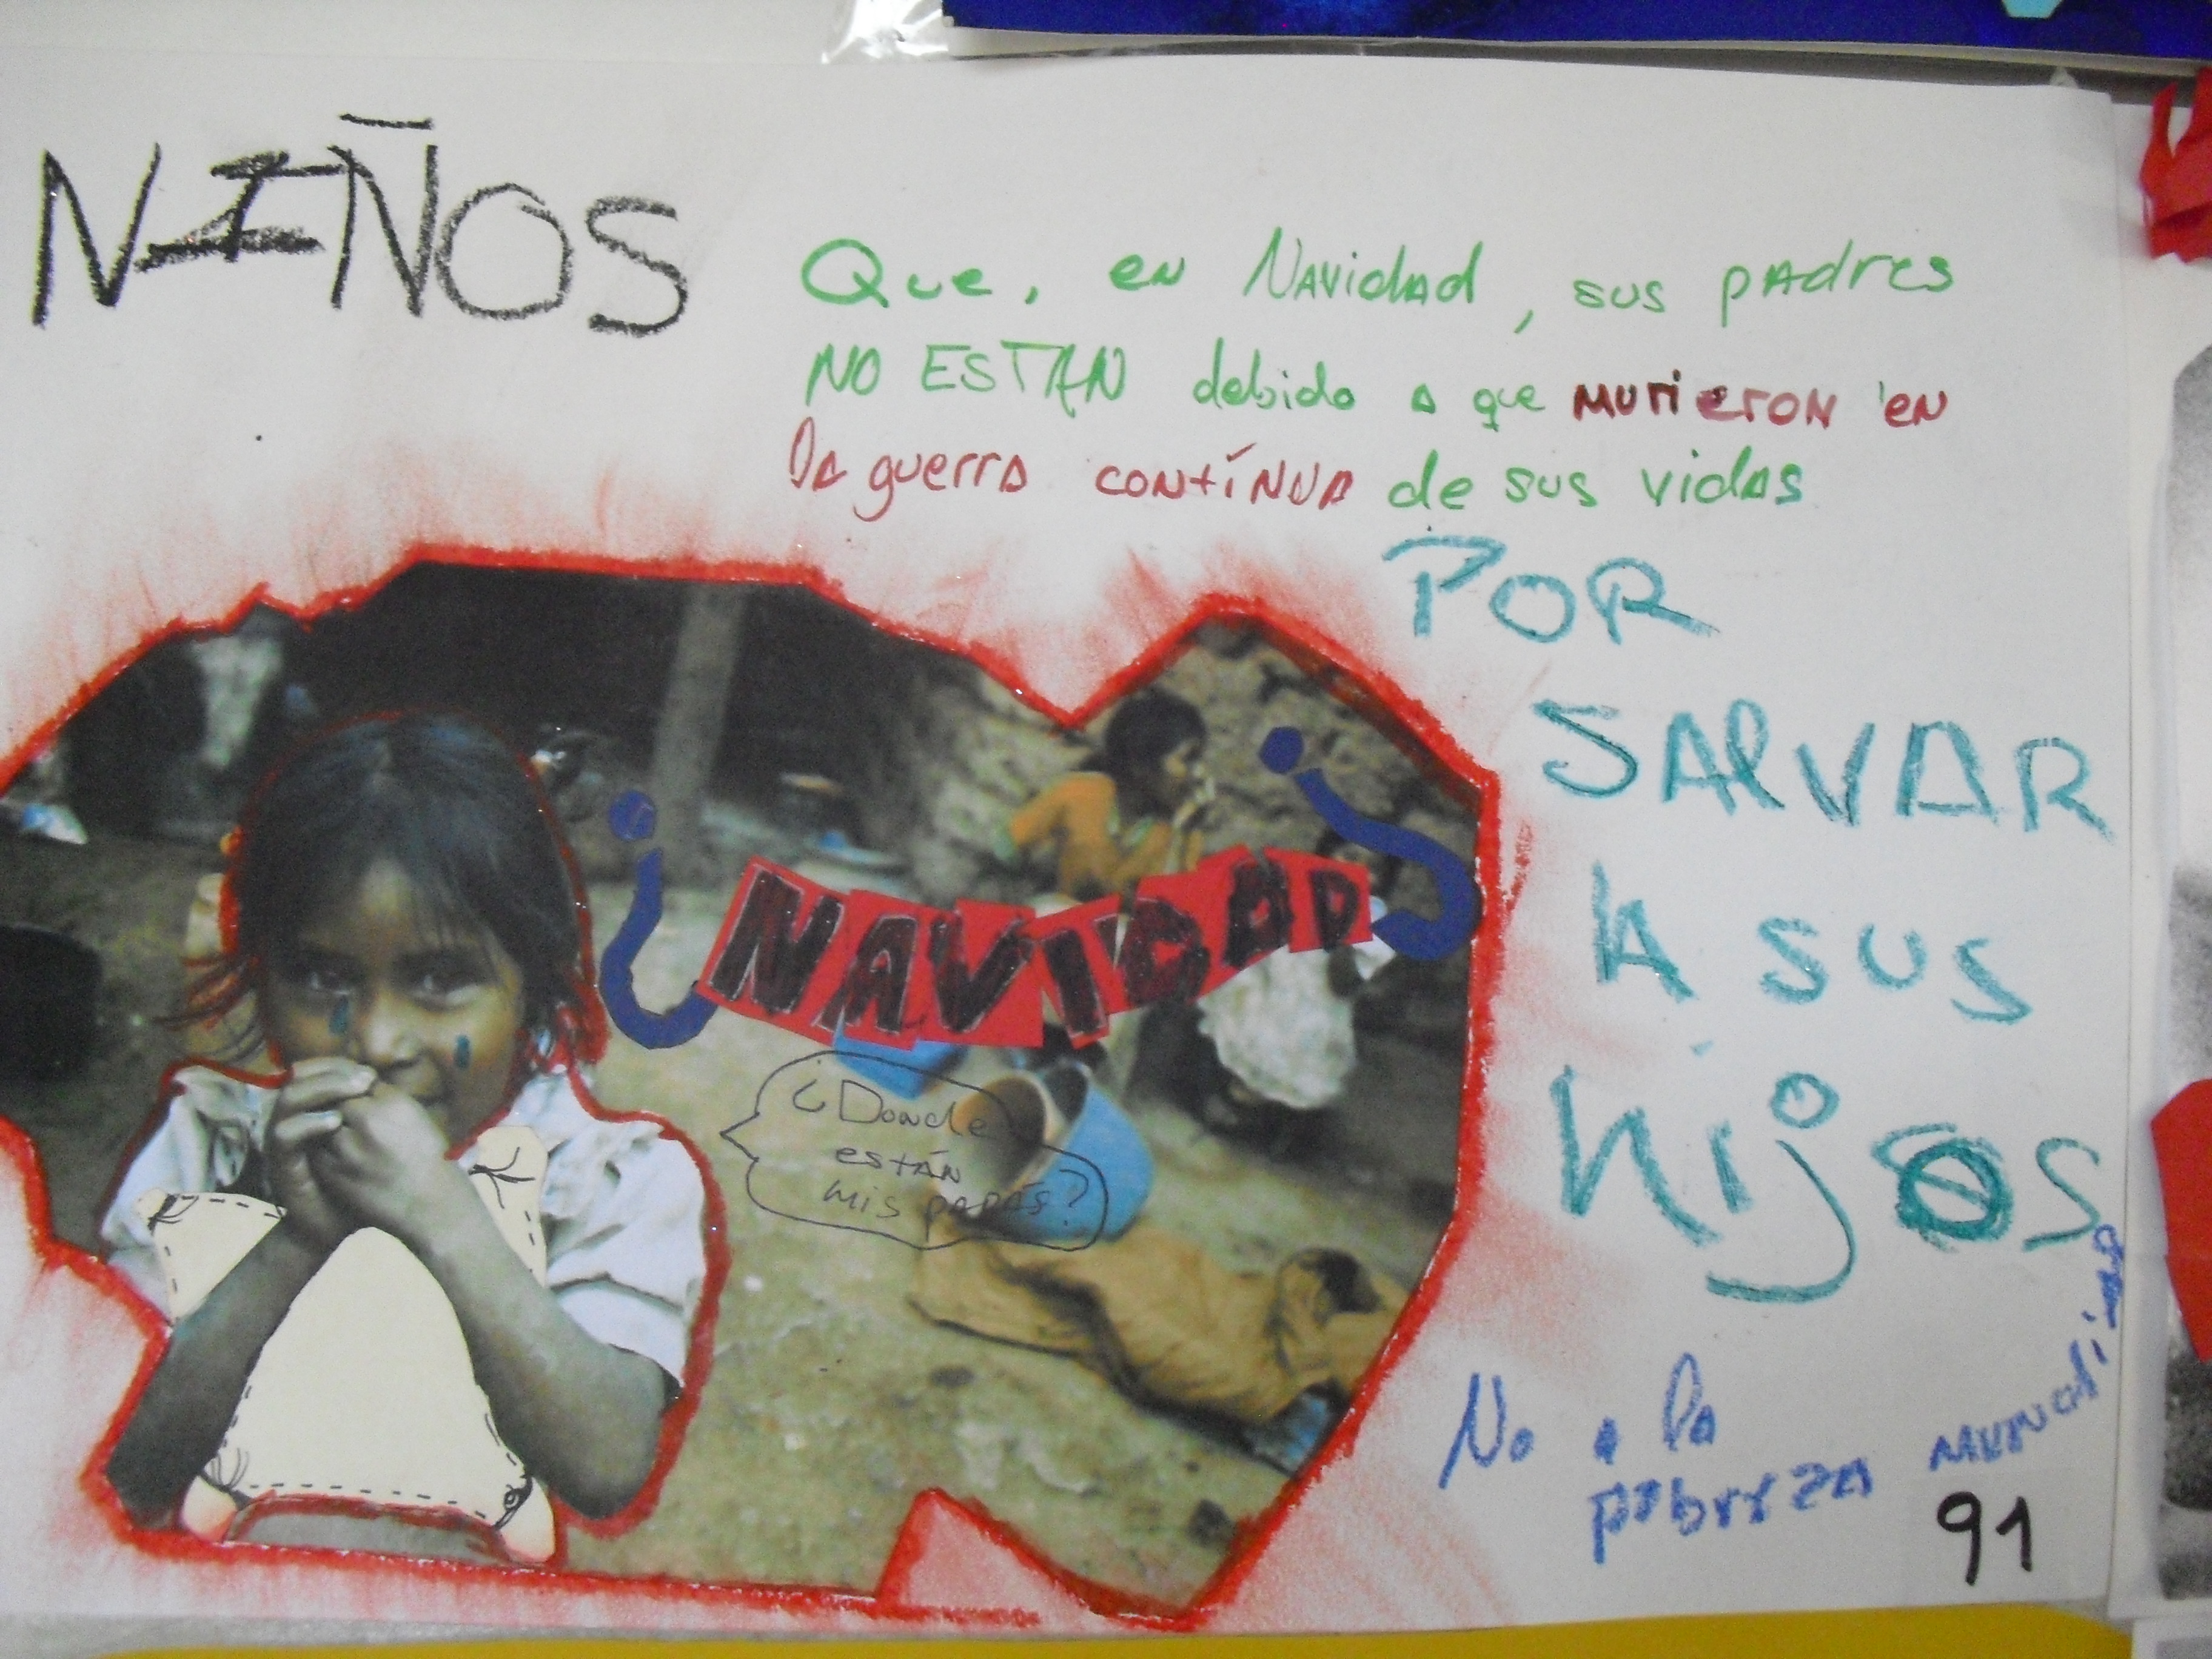 NIÑOS
Que, en Navidad, sus padres
NO ESTAN debido a que murieron en
la guerra contínua de sus vidas
POR
SALVAR
A sus
hijos
¿NAVIDAD?
¿Donde
están
mis papás?
No a la
pobreza mundial
91